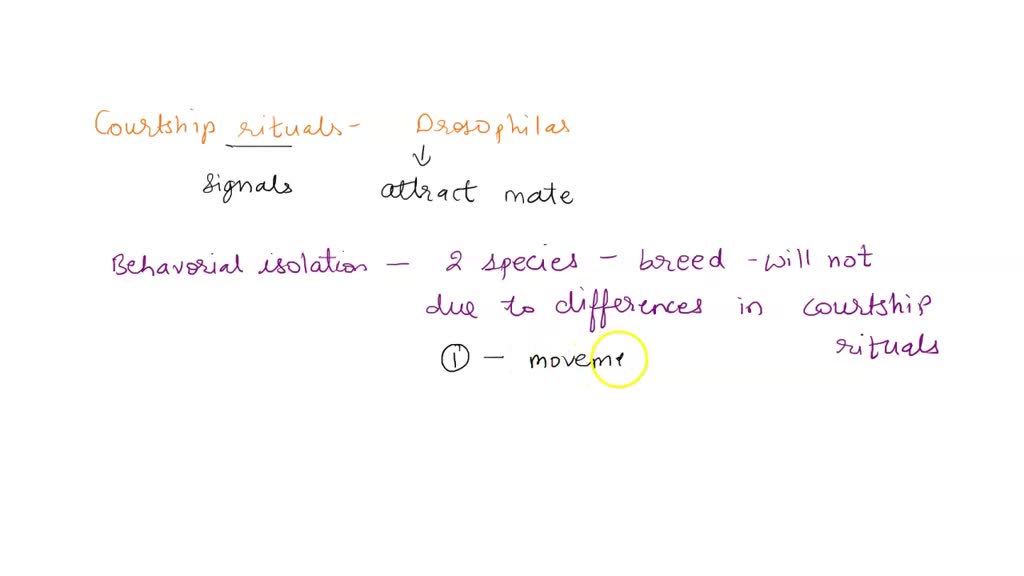 Courtship rituals - Drosophilas
↓
signals attract mate
Behavorial isolation - 2 species - breed - will not
due to differences in courtship
rituals
① - moveme